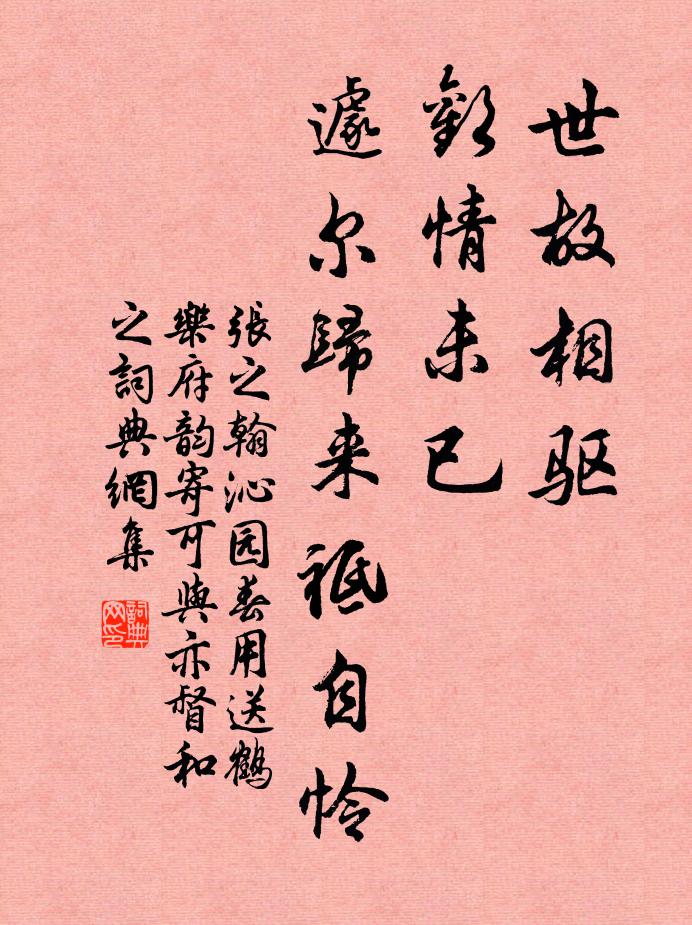 世故相驱
歡情未已
遽尔歸来祗自怜
張之翰沁园春用送鹤
樂府韵寄可與亦督和
之詞典網集
詞典网印